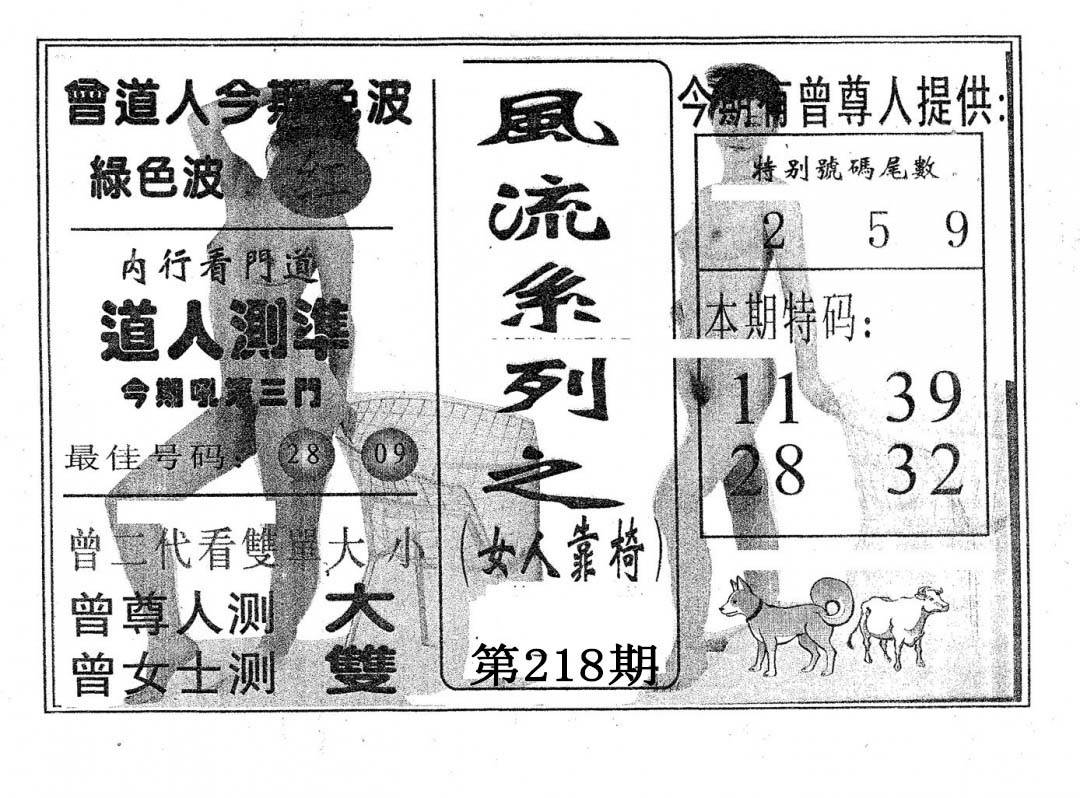 曾道人今期色波
綠色波
红
内行看門道
道人測準
今期吼准三門
最佳号码: 28 09
曾二代看雙單大小
曾尊人测 大
曾女士测 雙
風流系列之
(女人靠椅)
第218期
今期有曾尊人提供:
特别號碼尾數
2 5 9
本期特码:
11 39
28 32